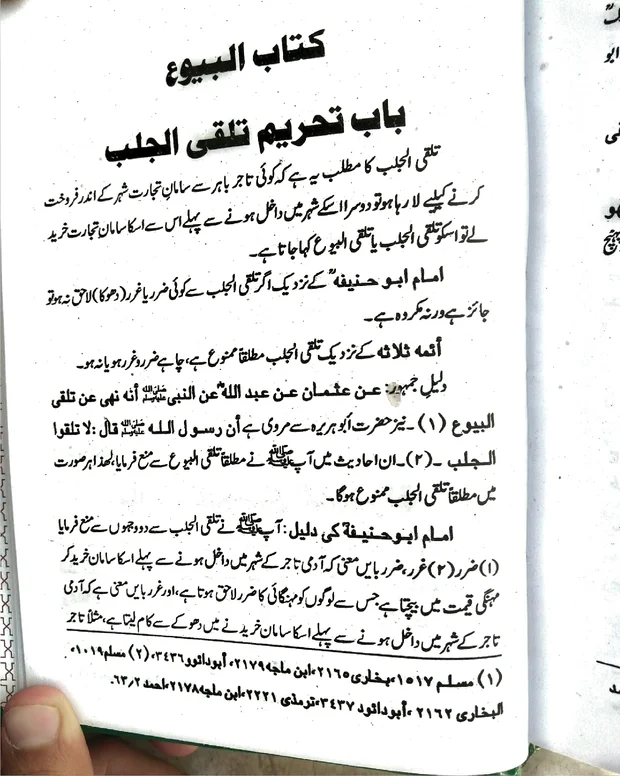 كتاب البيوع
باب تحريم تلقى الجلب
تلقی الجلب کا مطلب یہ ہے کہ کوئی تاجر باہر سے سامانِ تجارت شہر کے اندر فروخت
کرنے کیلیے لا رہا ہو تو دوسرا اسکے شہر میں داخل ہونے سے پہلے اس سے اسکا سامانِ تجارت خرید
لے تو اسکو تلقی الجلب یا تلقی البیوع کہا جاتا ہے۔
امام ابو حنیفہؒ کے نزدیک اگر تلقی الجلب سے کوئی ضرر یا غرر (دھوکا) لاحق نہ ہو تو
جائز ہے ورنہ مکروہ ہے۔
أئمه ثلاثه کے نزدیک تلقی الجلب مطلقاً ممنوع ہے، چاہے ضرر و غرر ہو یا نہ ہو۔
دلیلِ جمہور: عن عثمان عن عبد الله عن النبی ﷺ أنه نهى عن تلقى
البيوع (۱)۔ نیز حضرت أبو ہریرہ سے مروی ہے أن رسول الله ﷺ قال: لا تلقوا
الجلب ۔(۲)۔ ان احادیث میں آپ ﷺ نے مطلقاً تلقی البیوع سے منع فرمایا، لھٰذا ہر صورت
میں مطلقاً تلقی الجلب ممنوع ہوگا۔
امام ابو حنیفہ کی دلیل: آپ ﷺ نے تلقی الجلب سے دو وجہوں سے منع فرمایا
(۱) ضرر (۲) غرر، ضرر بایں معنی کہ آدمی تاجر کے شہر میں داخل ہونے سے پہلے اسکا سامان خرید کر
مہنگی قیمت میں بیچتا ہے جس سے لوگوں کو مہنگائی کا ضرر لاحق ہوتا ہے، اور غرر بایں معنی ہے کہ آدمی
تاجر کے شہر میں داخل ہونے سے پہلے اسکا سامان خریدنے میں دھوکے سے کام لیتا ہے، مثلاً تاجر
(۱) مسلم ۱۵۱۷، بخاری ۲۱۶۵، ابن ماجه ۲۱۷۹، أبودائود ۳۴۳۶، (۲) مسلم ۱۰۱۹،
البخاری ۲۱۶۲، أبودائود ۳۴۳۷، ترمذی ۲۲۲۱، ابن ماجه ۲۱۷۸، احمد ۶۳/۲۔